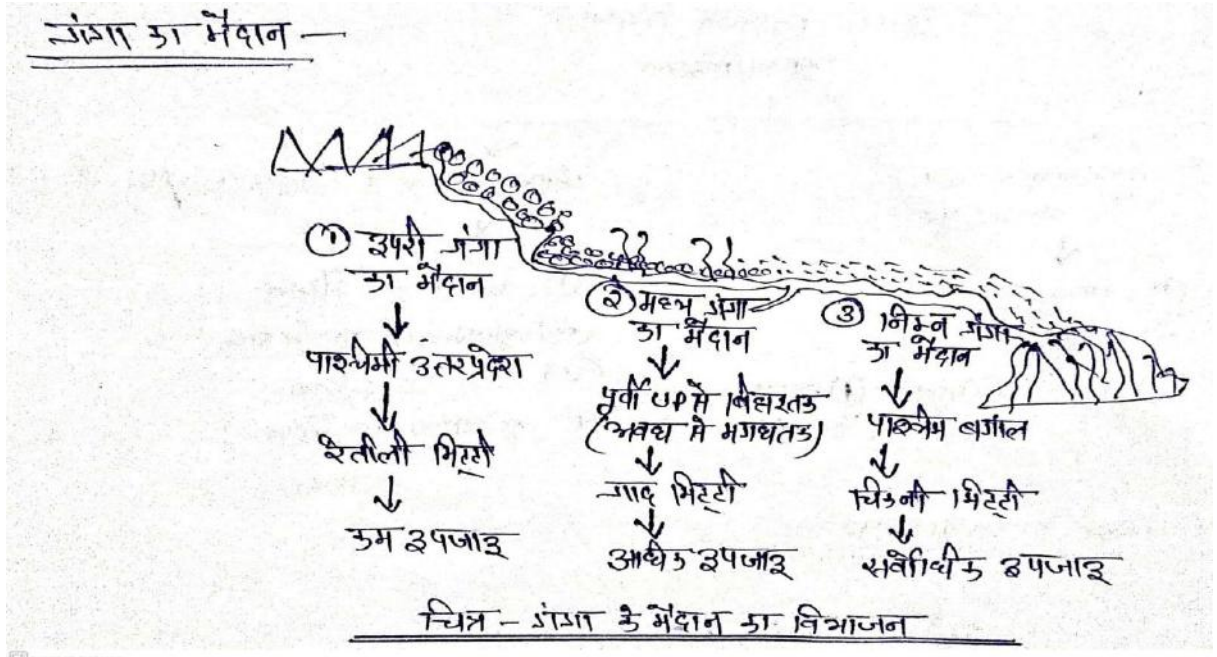 गंगा का मैदान —
① उपरी गंगा
का मैदान
↓
पाश्चिमी उत्तरप्रदेश
↓
रेतीली मिट्टी
↓
कम उपजाऊ
② मध्य गंगा
का मैदान
↓
पूर्वी UP से बिहारतक
(अवध से मगधतक)
↓
गाद मिट्टी
↓
आधिक उपजाऊ
③ निम्न गंगा
का मैदान
↓
पाश्चिम बंगाल
↓
चिकनी मिट्टी
↓
सर्वाधिक उपजाऊ
चित्र – गंगा के मैदान का विभाजन